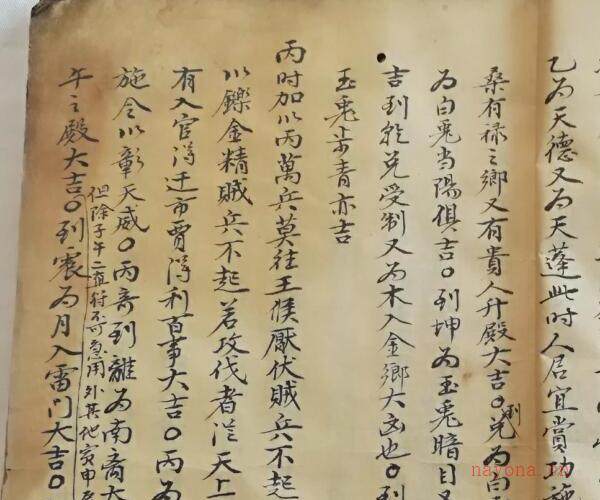 乙為天德又為天蓬此時人居宜賞功施
桑有祿之鄉又有貴人升殿大吉○到兌為白
為白兎當陽俱吉○到坤為玉兎暗目又
吉到乾兌受制又為木入金鄉大凶也○到
玉兎步青亦吉
丙時加以丙萬兵莫往王侯厭伏賊兵不起
以鑠金精賊兵不起若攻伐者從天上
有入官得迁市賈得利百事大吉○丙為
施令以彰天威○丙奇到離為南商大
但除子午二值符不可急用外其地寅申
午之殿大吉○到震為月入雷門大吉○
nayona.cn